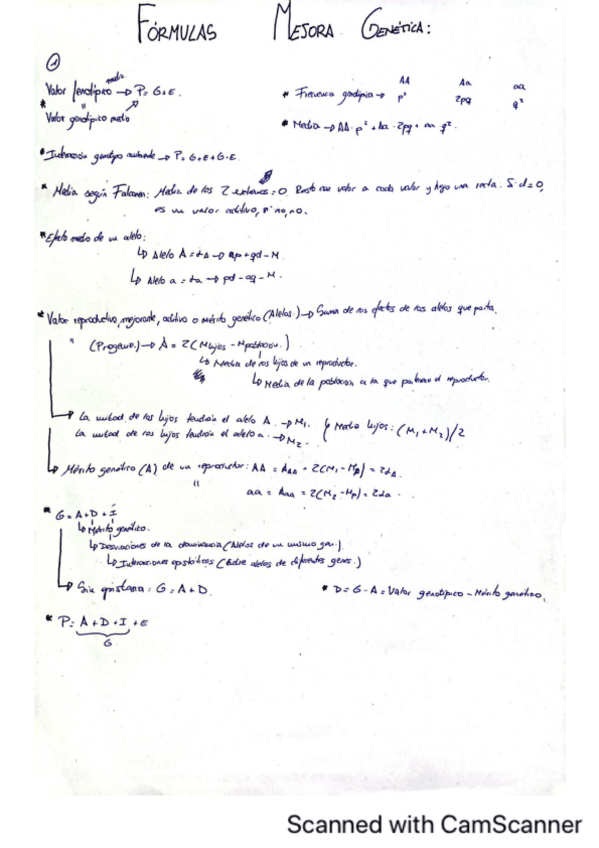 FÓRMULAS MEJORA GENÉTICA:
①
Valor fenotípico medio → P = G + E.
"
* Valor genotípico medio
* Frecuencia genotípica → AA p² Aa 2pq aa q²
* Media → AA · p² + Aa · 2pq + aa q².
* Interacción genotipo ambiente → P = G + E + G·E.
* Media según Falconer: Media de los 2 extremos = 0. Resto ese valor a cada valor y hago una recta. Si d = 0,
es un valor aditivo, si no, no.
* Efecto medio de un alelo:
↳ Alelo A = αA → ap + qd - M.
↳ Alelo a = αa → pd - aq - M.
* Valor reproductivo, mejorante, aditivo o mérito genético (Alelos) → Suma de los efectos de los alelos que porta.
" (Progenie) → A = 2(Mhijos - Mpoblación.)
↳ Media de los hijos de un reproductor.
↳ Media de la población a la que pertenece el reproductor.
→ La mitad de los hijos tendrán el alelo A. → M₁.
La mitad de los hijos tendrán el alelo a. → M₂
Media hijos: (M₁ + M₂)/2
↳ Mérito genético (A) de un reproductor: AA = AAA = 2(M₁ - Mp) = 2αA.
"
aa = Aaa = 2(M₂ - Mp) = 2αa.
* G = A + D + I
↳ Mérito genético.
↳ Desviaciones de la dominancia (Alelos de un mismo gen)
↳ Interacciones epistáticas (Entre alelos de diferentes genes.)
↳ Sin epistasia: G = A + D.
* D = G - A = Valor genotípico - Mérito genético.
* P = A + D + I + E
G
Scanned with CamScanner